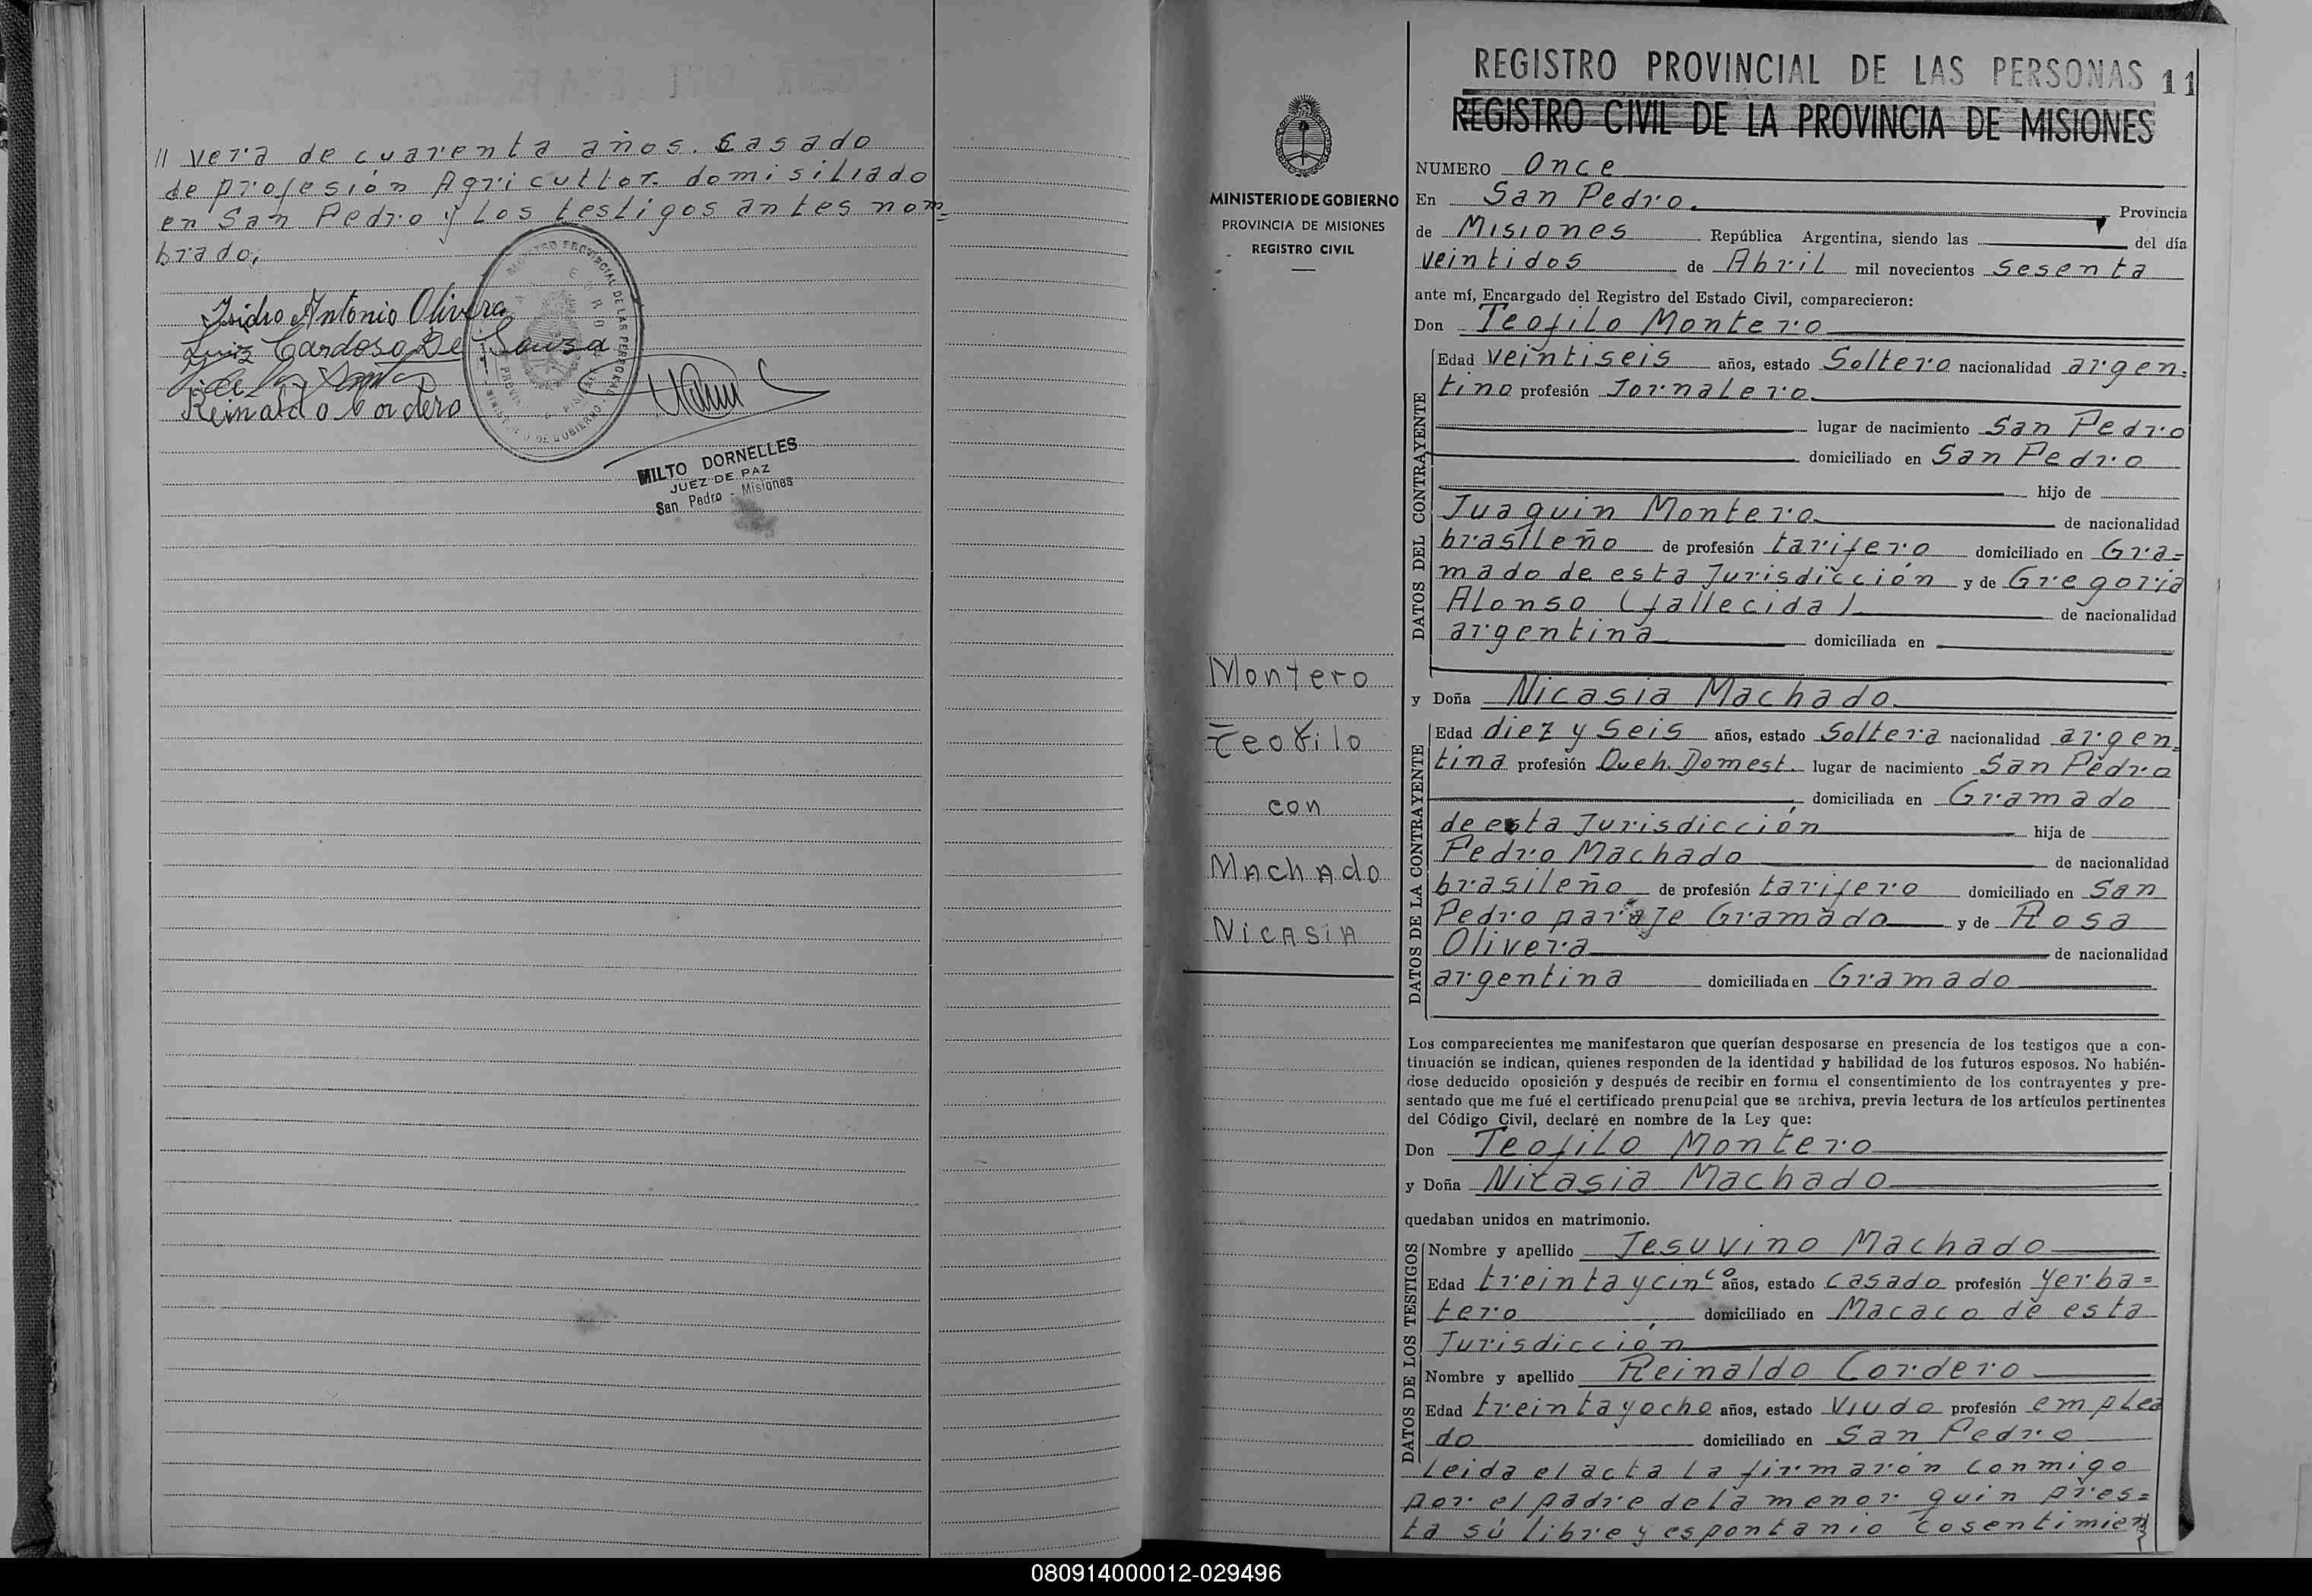 // vera de cuarenta años. Casado
de profesión Agricultor domisiliado
en San Pedro y los testigos antes nom=
brado,
Isidro Antonio Olivera
Luiz Cardoso De Souza
Reinaldo Cordero
REGISTRO PROVINCIAL DE LAS PERSONAS
MINISTERIO DE GOBIERNO
MILTO DORNELLES
JUEZ DE PAZ
San Pedro - Misiones
MINISTERIO DE GOBIERNO
PROVINCIA DE MISIONES
REGISTRO CIVIL
Montero
Teofilo
con
Machado
Nicasia
REGISTRO PROVINCIAL DE LAS PERSONAS 11
REGISTRO CIVIL DE LA PROVINCIA DE MISIONES
NUMERO Once
En San Pedro. Provincia
de Misiones República Argentina, siendo las del día
veintidos de Abril mil novecientos sesenta
ante mí, Encargado del Registro del Estado Civil, comparecieron:
Don Teofilo Montero
DATOS DEL CONTRAYENTE
Edad veintiseis años, estado Soltero nacionalidad argen=
tino profesión Jornalero
lugar de nacimiento San Pedro
domiciliado en San Pedro
hijo de
Juaquin Montero de nacionalidad
brasileño de profesión tarifero domiciliado en Gra=
mado de esta Jurisdicción y de Gregoria
Alonso (fallecida) de nacionalidad
argentina domiciliada en
y Doña Nicasia Machado
DATOS DE LA CONTRAYENTE
Edad diez y seis años, estado Soltera nacionalidad argen=
tina profesión Queh. Domest. lugar de nacimiento San Pedro
domiciliada en Gramado
de esta Jurisdicción hija de
Pedro Machado de nacionalidad
brasileño de profesión tarifero domiciliado en San
Pedro paraje Gramado y de Rosa
Olivera de nacionalidad
argentina domiciliada en Gramado
Los comparecientes me manifestaron que querían desposarse en presencia de los testigos que a con-
tinuación se indican, quienes responden de la identidad y habilidad de los futuros esposos. No habién-
dose deducido oposición y después de recibir en forma el consentimiento de los contrayentes y pre-
sentado que me fué el certificado prenupcial que se archiva, previa lectura de los artículos pertinentes
del Código Civil, declaré en nombre de la Ley que:
Don Teofilo Montero
y Doña Nicasia Machado
quedaban unidos en matrimonio.
DATOS DE LOS TESTIGOS
Nombre y apellido Jesuvino Machado
Edad treinta y cinco años, estado casado profesión yerba=
tero domiciliado en Macaco de esta
Jurisdicción
Nombre y apellido Reinaldo Cordero
Edad treinta y ocho años, estado Viudo profesión emplea
do domiciliado en San Pedro
Leida el acta la firmaron conmigo
por el padre de la menor quin pres=
ta sú libre y espontanio cosentimien
080914000012-029496